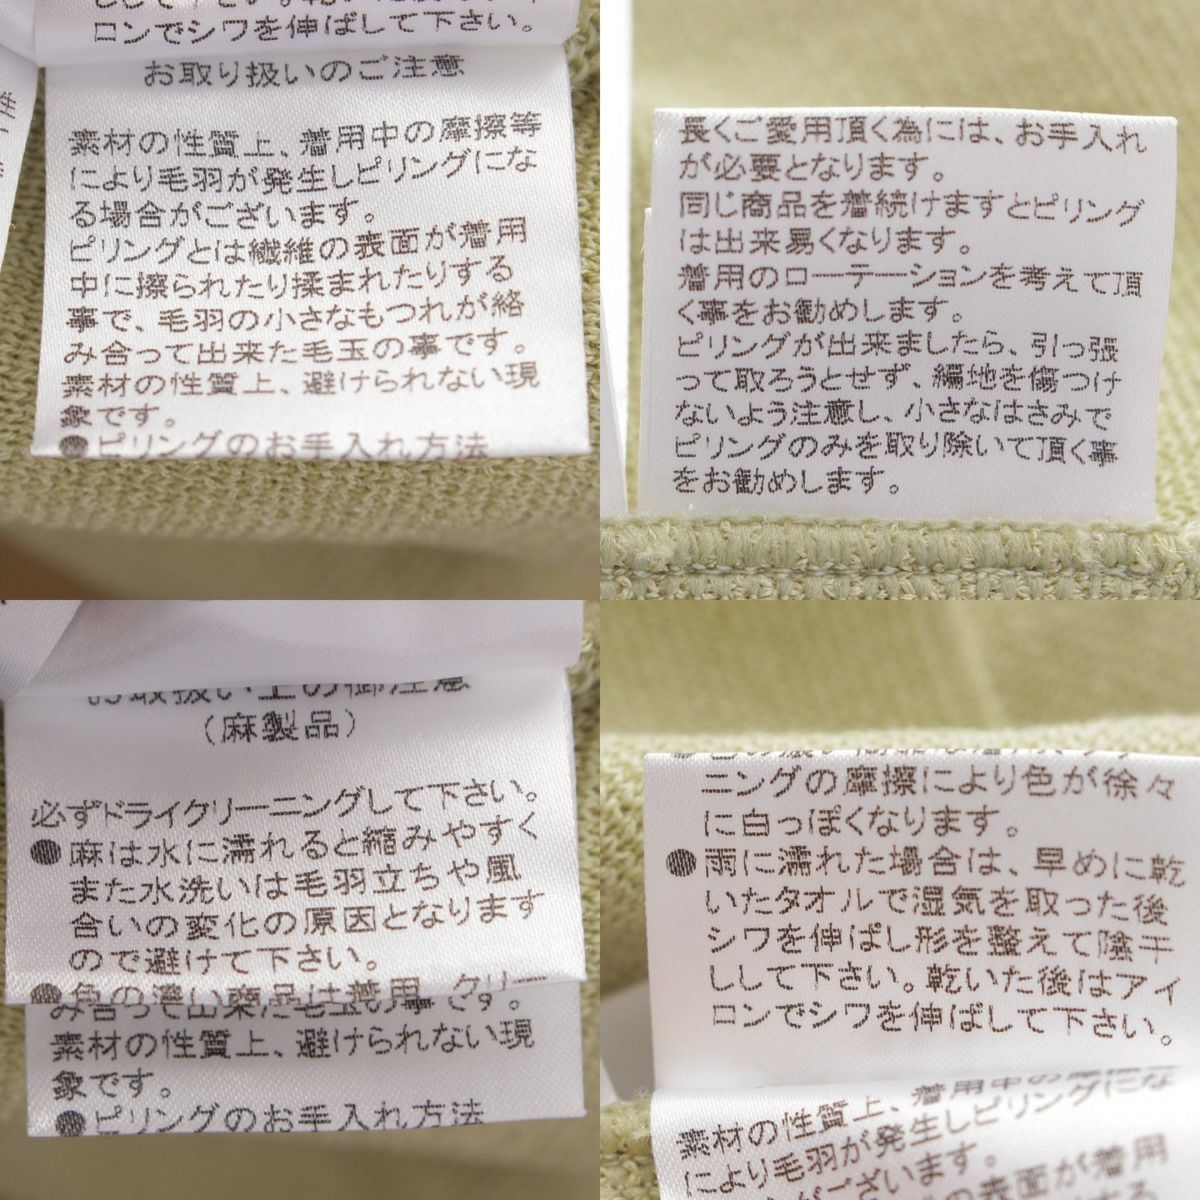 ロンでシワを伸ばして下さい。
お取り扱いのご注意
素材の性質上、着用中の摩擦等
により毛羽が発生しピリングにな
る場合がございます。
ピリングとは繊維の表面が着用
中に擦られたり揉まれたりする
事で、毛羽の小さなもつれが絡
み合って出来た毛玉の事です。
素材の性質上、避けられない現
象です。
●ピリングのお手入れ方法
長くご愛用頂く為には、お手入れ
が必要となります。
同じ商品を着続けますとピリング
は出来易くなります。
着用のローテーションを考えて頂
く事をお勧めします。
ピリングが出来ましたら、引っ張
って取ろうとせず、編地を傷つけ
ないよう注意し、小さなはさみで
ピリングのみを取り除いて頂く事
をお勧めします。
お取扱い上の御注意
（麻製品）
必ずドライクリーニングして下さい。
●麻は水に濡れると縮みやすく
また水洗いは毛羽立ちや風
合いの変化の原因となります
ので避けて下さい。
●色の濃い商品は着用、クリー
み合って出来た毛玉の事です。
素材の性質上、避けられない現
象です。
●ピリングのお手入れ方法
ニングの摩擦により色が徐々
に白っぽくなります。
●雨に濡れた場合は、早めに乾
いたタオルで湿気を取った後
シワを伸ばし形を整えて陰干
ししして下さい。乾いた後はアイ
ロンでシワを伸ばして下さい。
素材の性質上、着用中の摩擦
により毛羽が発生しピリングにな
がございます。
の表面が着用